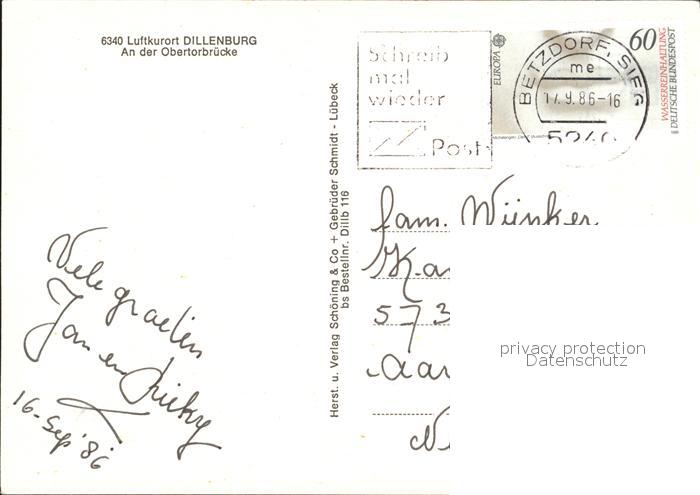 6340 Luftkurort DILLENBURG
An der Obertorbrücke
Schreib
mal
wieder
Post
EUROPA
60
WASSERREINHALTUNG
DEUTSCHE BUNDESPOST
BETZDORF, SIEG
me
17.9.86-16
5240
Herst. u. Verlag Schöning & Co + Gebrüder Schmidt - Lübeck
bs Bestellnr. Dillb 116
fam. Wünker
Ka
573
Aar
privacy protection
Datenschutz
Vele groeten
Jan en
16-Sep '86